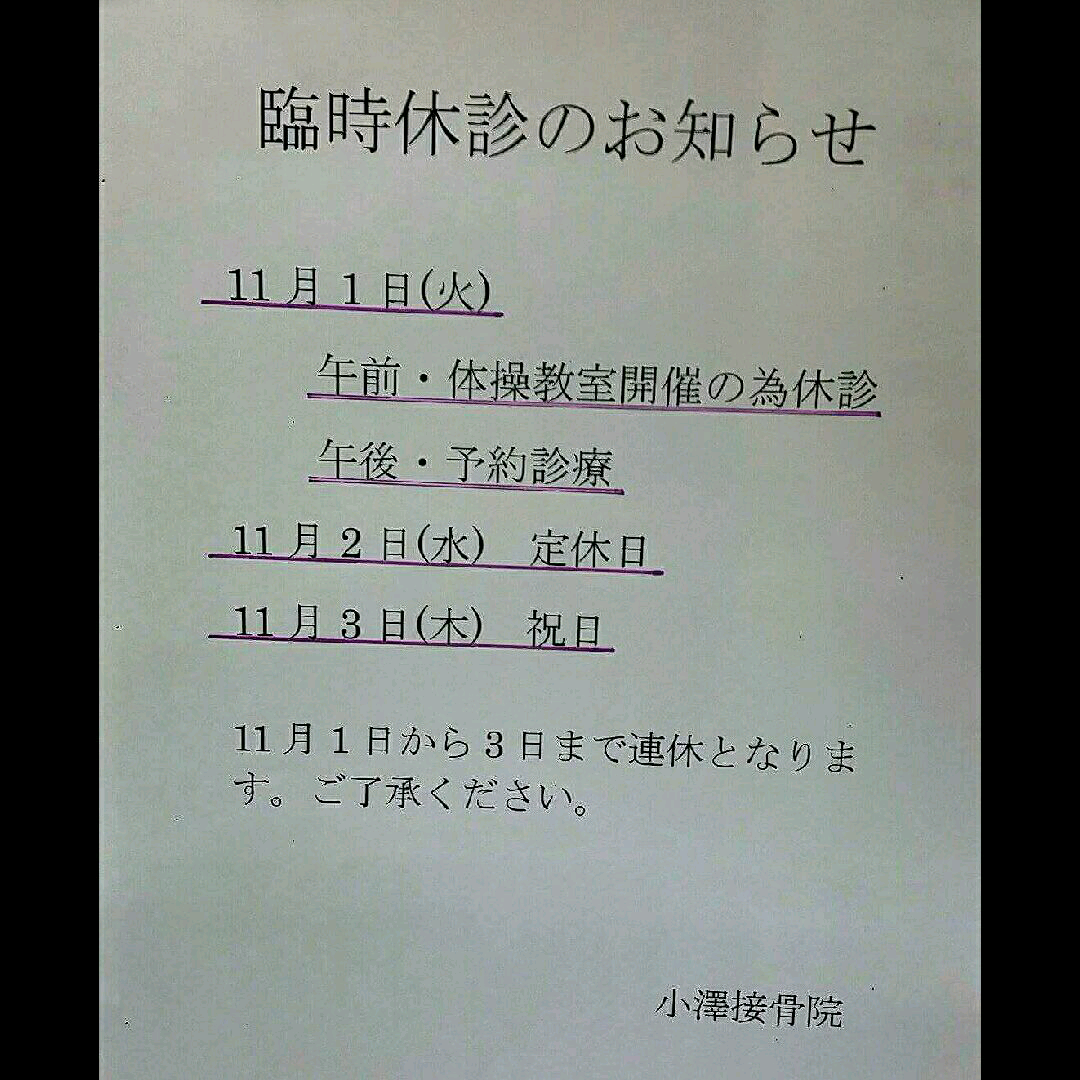 臨時休診のお知らせ
11月1日(火)
午前・体操教室開催の為休診
午後・予約診療
11月2日(水)　定休日
11月3日(木)　祝日
11月1日から3日まで連休となりま
す。ご了承ください。
小澤接骨院